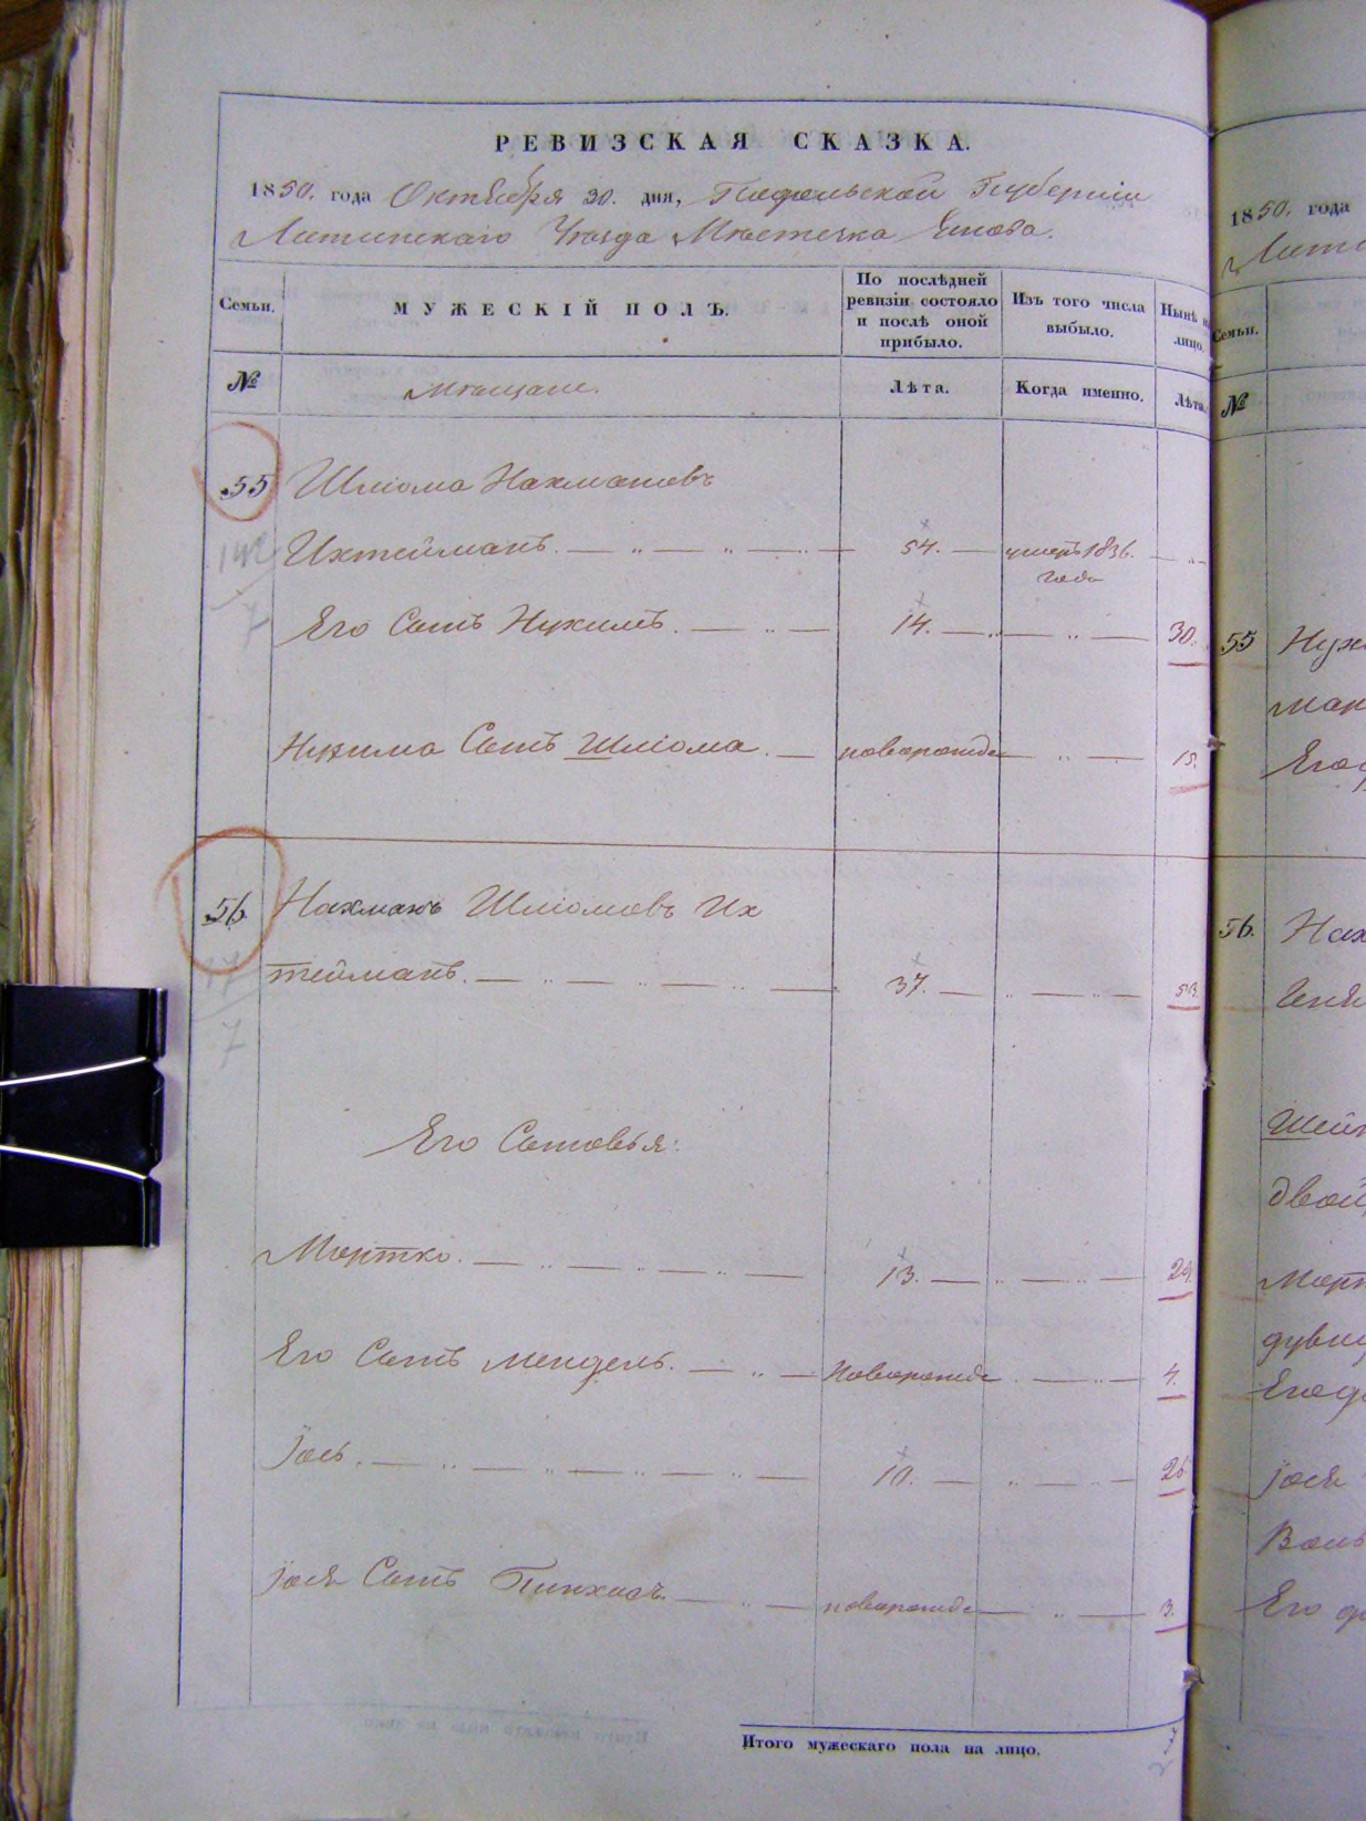 РЕВИЗСКАЯ СКАЗКА.
1850. года Октября 30. дня, Подольской Губерніи
Литинскаго Уѣзда Мѣстечка Янова.
Семьи.
МУЖЕСКІЙ ПОЛЪ.
По послѣдней ревизіи состояло и послѣ оной прибыло.
Изъ того числа выбыло.
Нынѣ на лицо.
№
Мѣщане.
Лѣта.
Когда именно.
Лѣта.
55 Шліома Нахмановъ
Ихтейманъ. 54. умеръ 1836. года
Его Сынъ Нухимъ. 14. 30.
Нухима Сынъ Шліома. новорожде 15.
56 Нахманъ Шліомовъ Их
тейманъ. 37. 53.
Его Сыновья:
Мортко. 13. 29.
Его Сынъ Мендель. Новорожде 4.
Іось. 10. 26
Іося Сынъ Пинхасъ. новорожде 3.
Итого мужескаго пола на лицо.
7
1850. года
Семьи.
№
55
56.
Іося